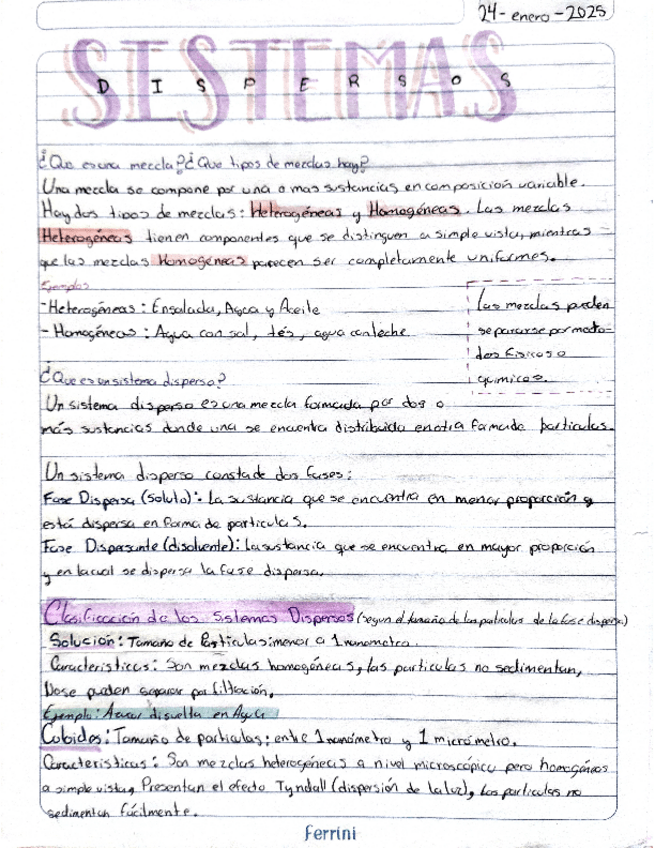 24-enero-2025
SISTEMAS
DISPERSOS
¿Que es una mezcla? ¿Que tipos de mezclas hay?
Una mezcla se compone por una o mas sustancias en composición variable.
Hay dos tipos de mezclas: Heterogéneas y Homogéneas. Las mezclas
Heterogéneas tienen componentes que se distinguen a simple vista, mientras
que las mezclas Homogéneas parecen ser completamente uniformes.
Ejemplos
-Heterogéneas: Ensalada, Agua y Aceite
- Homogéneas: Agua con sal, tés, agua con leche
Las mezclas pueden
separarse por meto-
dos físicos o
químicos.
¿Que es un sistema disperso?
Un sistema disperso es una mezcla formada por dos o
más sustancias donde una se encuentra distribuida en otra forma de particulas.
Un sistema disperso consta de dos fases:
Fase Dispersa (soluto): La sustancia que se encuentra en menor proporción y
está dispersa en forma de particulas.
Fase Dispersante (disolvente): La sustancia que se encuentra en mayor proporción
y en la cual se dispersa la fase dispersa.
Clasificación de los Sistemas Dispersos (segun el tamaño de las particulas de la fase dispersa)
Solución: Tamaño de Particulas: menor a 1 nanometro.
Características: Son mezclas homogéneas, las particulas no sedimentan,
No se pueden separar por filtración.
Ejemplo: Azucar disuelta en Agua
Coloides: Tamaño de particulas: entre 1 nanómetro y 1 micrómetro.
Características: Son mezclas heterogéneas a nivel microscópico pero homogéneas
a simple vista, Presentan el efecto Tyndall (dispersión de la luz), Las particulas no
sedimentan fácilmente.
Ferrini